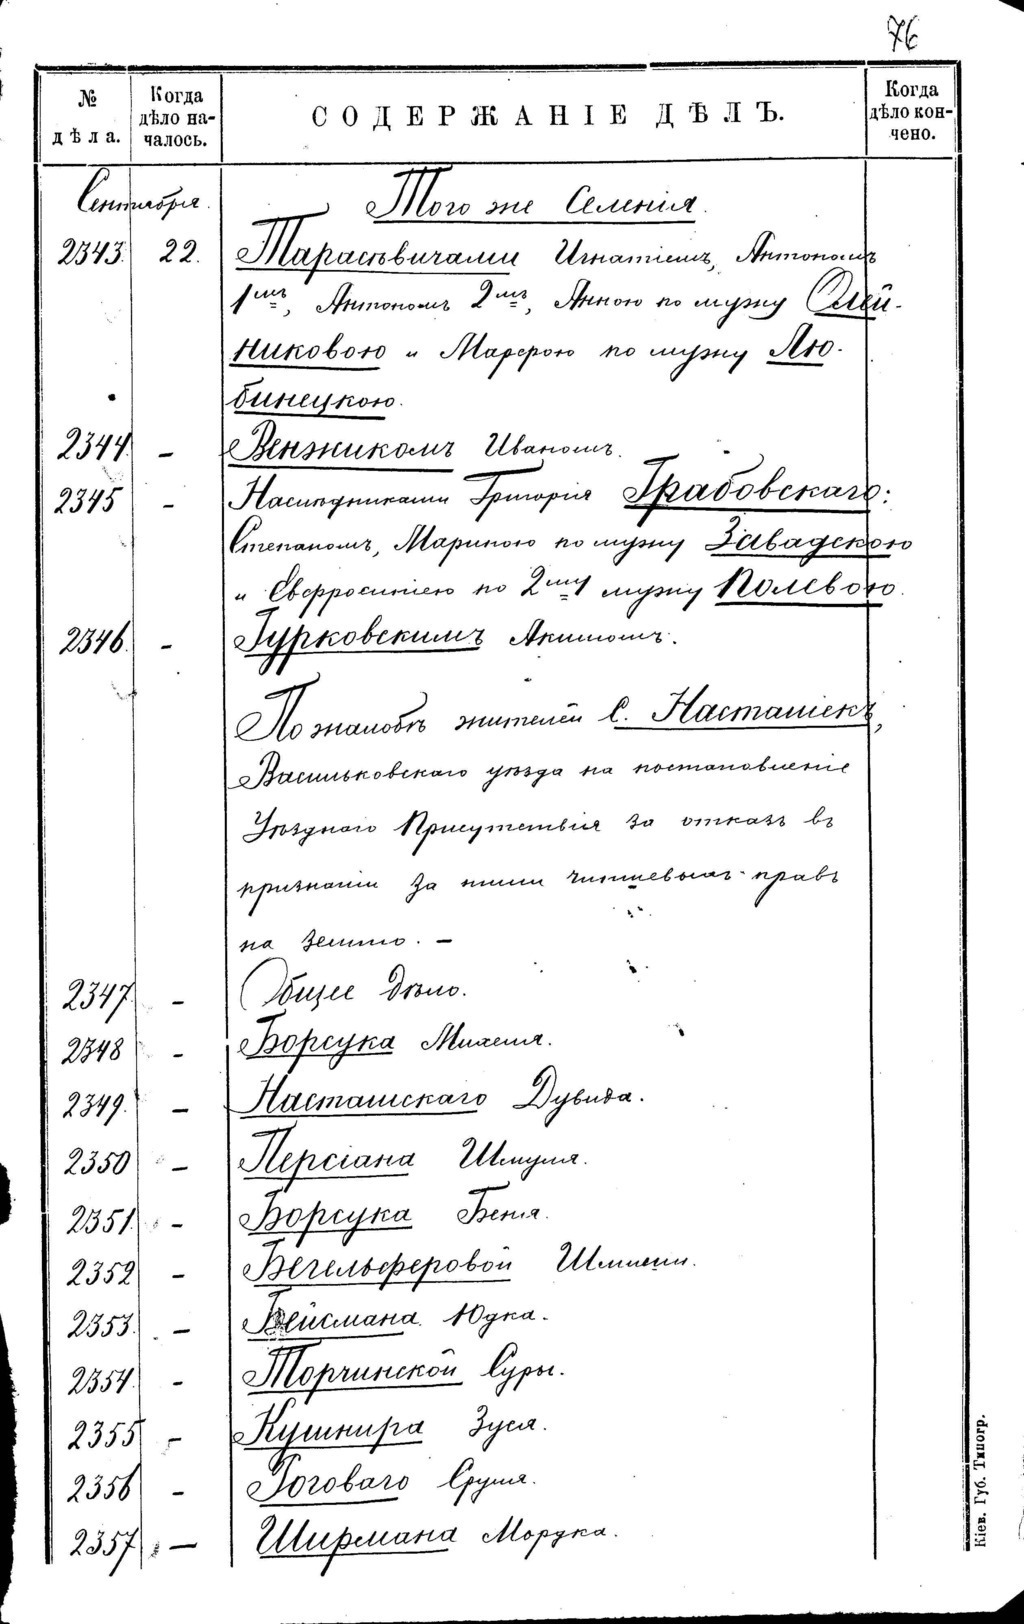 76
№ дѣла.
Когда дѣло на-
чалось.
СОДЕРЖАНІЕ ДѢЛЪ.
Когда дѣло кон-
чено.
Сентября Того же Селенія.
2343. 22. Тарасѣвичами Игнатіемъ, Антономъ
1мъ, Антономъ 2мъ, Анною по мужу Олей-
никовою и Марѳою по мужу Лю-
бинецкою.
2344. – Венжикомъ Иваномъ.
2345 – Наслѣдниками Григорія Грабовскаго:
Степаномъ, Мариною по мужу Завадскою
и Евфросиніею по 2му мужу Полевою.
2346. – Гурковскимъ Акимомъ.
По жалобѣ жителей с. Насташекъ,
Васильковскаго уѣзда на постановленіе
Уѣзднаго Присутствія за отказъ въ
признаніи за ними чиншевыхъ правъ
на землю. –
2347 – Общее дѣло.
2348 – Борсука Михеля.
2349. – Насташскаго Дувида.
2350 – Персіана Шмуля.
2351. – Борсука Беня.
2352 – Бегельферовой
2353. – Бейсмана Юдка.
2354 – Торчинской Суры.
2355 – Кушнира Зуся.
2356 – Роговаго Сруля.
2357 – Ширмана Мордка.
Кіев. Губ. Типогр.